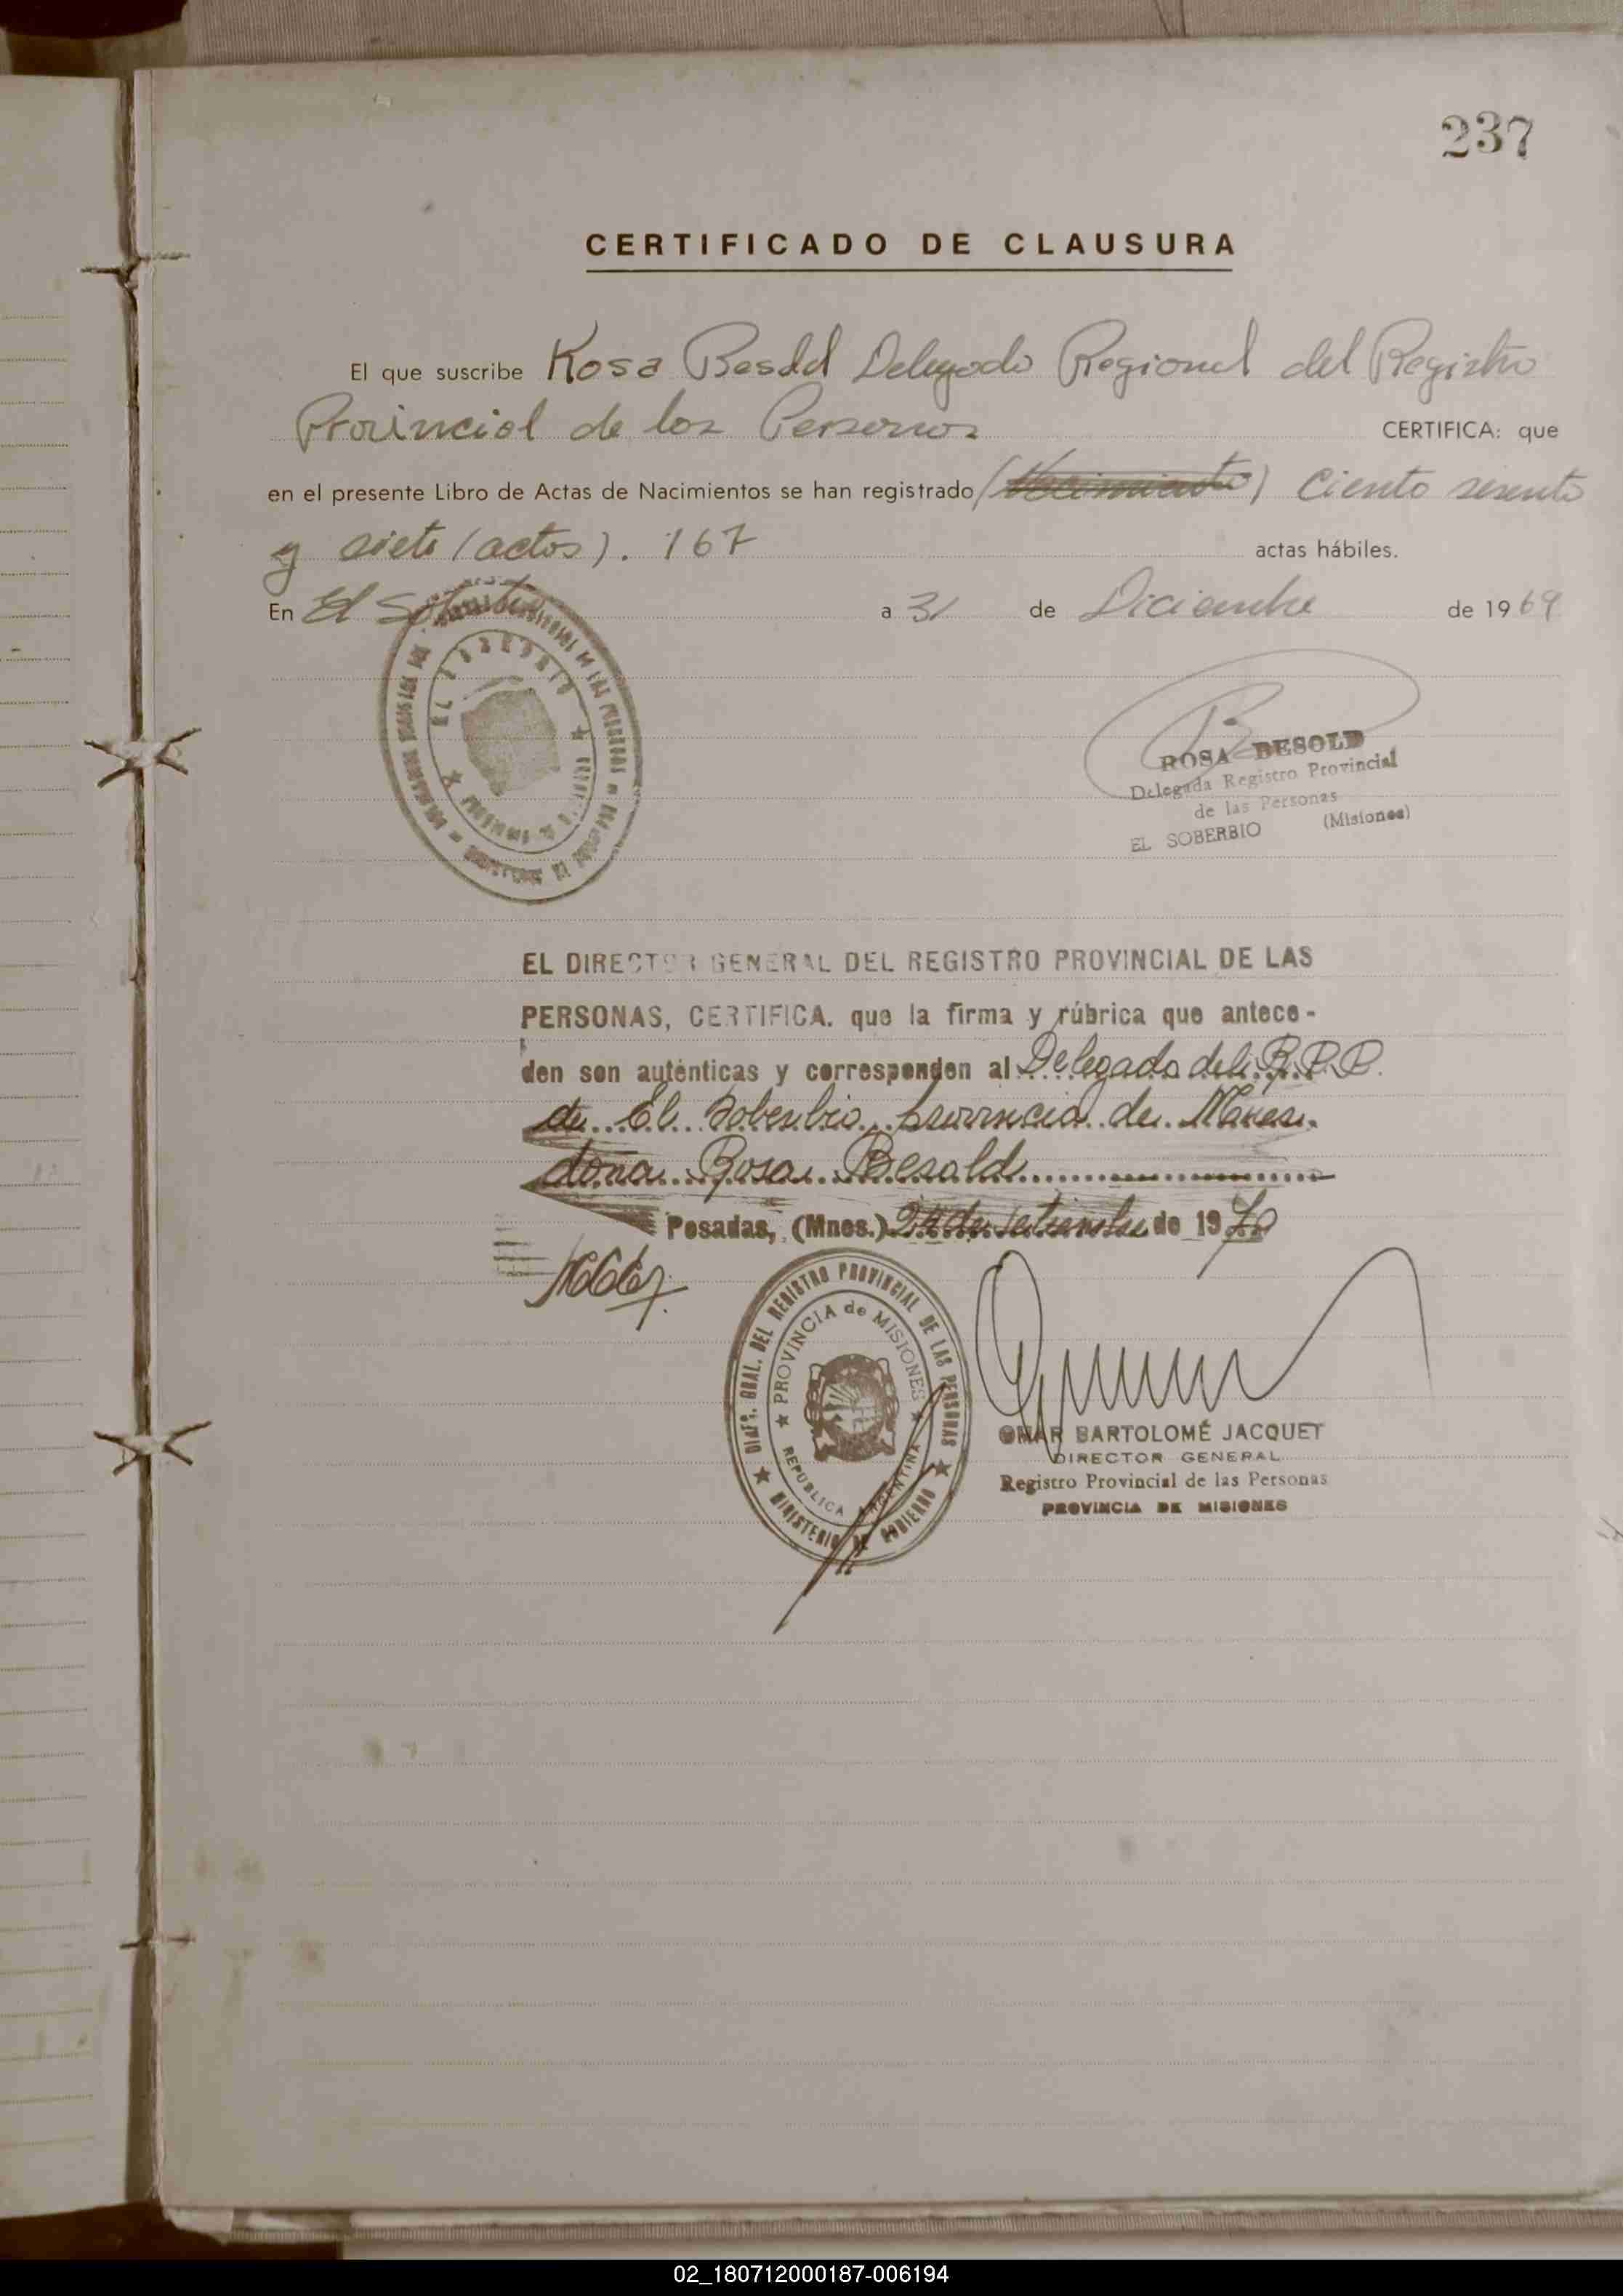 237
CERTIFICADO DE CLAUSURA
El que suscribe Rosa Besold Delegado Regional del Registro
Provincial de las Personas CERTIFICA: que
en el presente Libro de Actas de Nacimientos se han registrado (Nacimiento) Ciento sesenta
y siete (actas). 167 actas hábiles.
En El Soberbio a 31 de Diciembre de 1969
ROSA BESOLD
Delegada Registro Provincial
de las Personas
EL SOBERBIO (Misiones)
EL DIRECTOR GENERAL DEL REGISTRO PROVINCIAL DE LAS
PERSONAS, CERTIFICA. que la firma y rúbrica que antece-
den son auténticas y corresponden al Delegado del R.P.P.
de El Soberbio, provincia de
doña Rosa Besold
Posadas, (Mnes.) 24 de setiembre de 1970
DIREC. GRAL. DEL REGISTRO PROVINCIAL DE LAS PERSONAS
PROVINCIA de MISIONES
REPUBLICA ARGENTINA
MINISTERIO DE GOBIERNO
OMAR BARTOLOMÉ JACQUET
DIRECTOR GENERAL
Registro Provincial de las Personas
PROVINCIA DE MISIONES
02_180712000187-006194